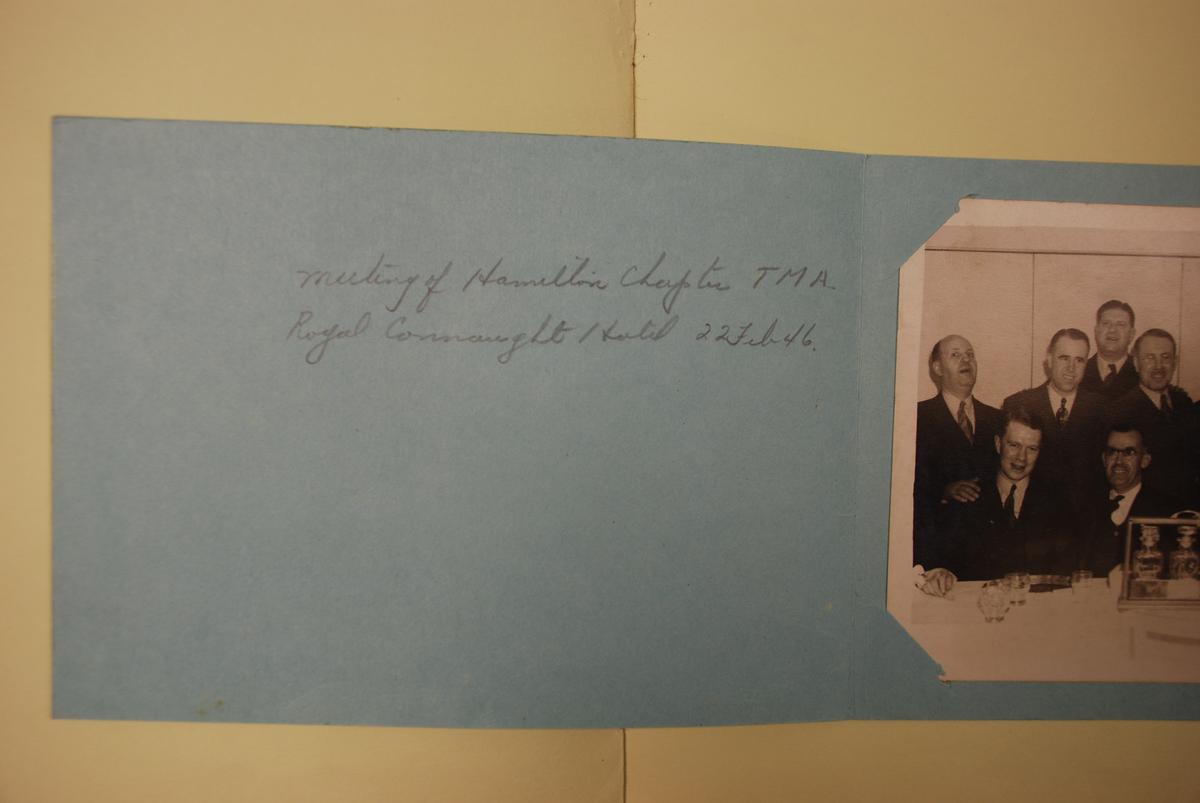 Meeting of Hamilton Chapter T M A.
Royal Connaught Hotel 22 Feb 46.